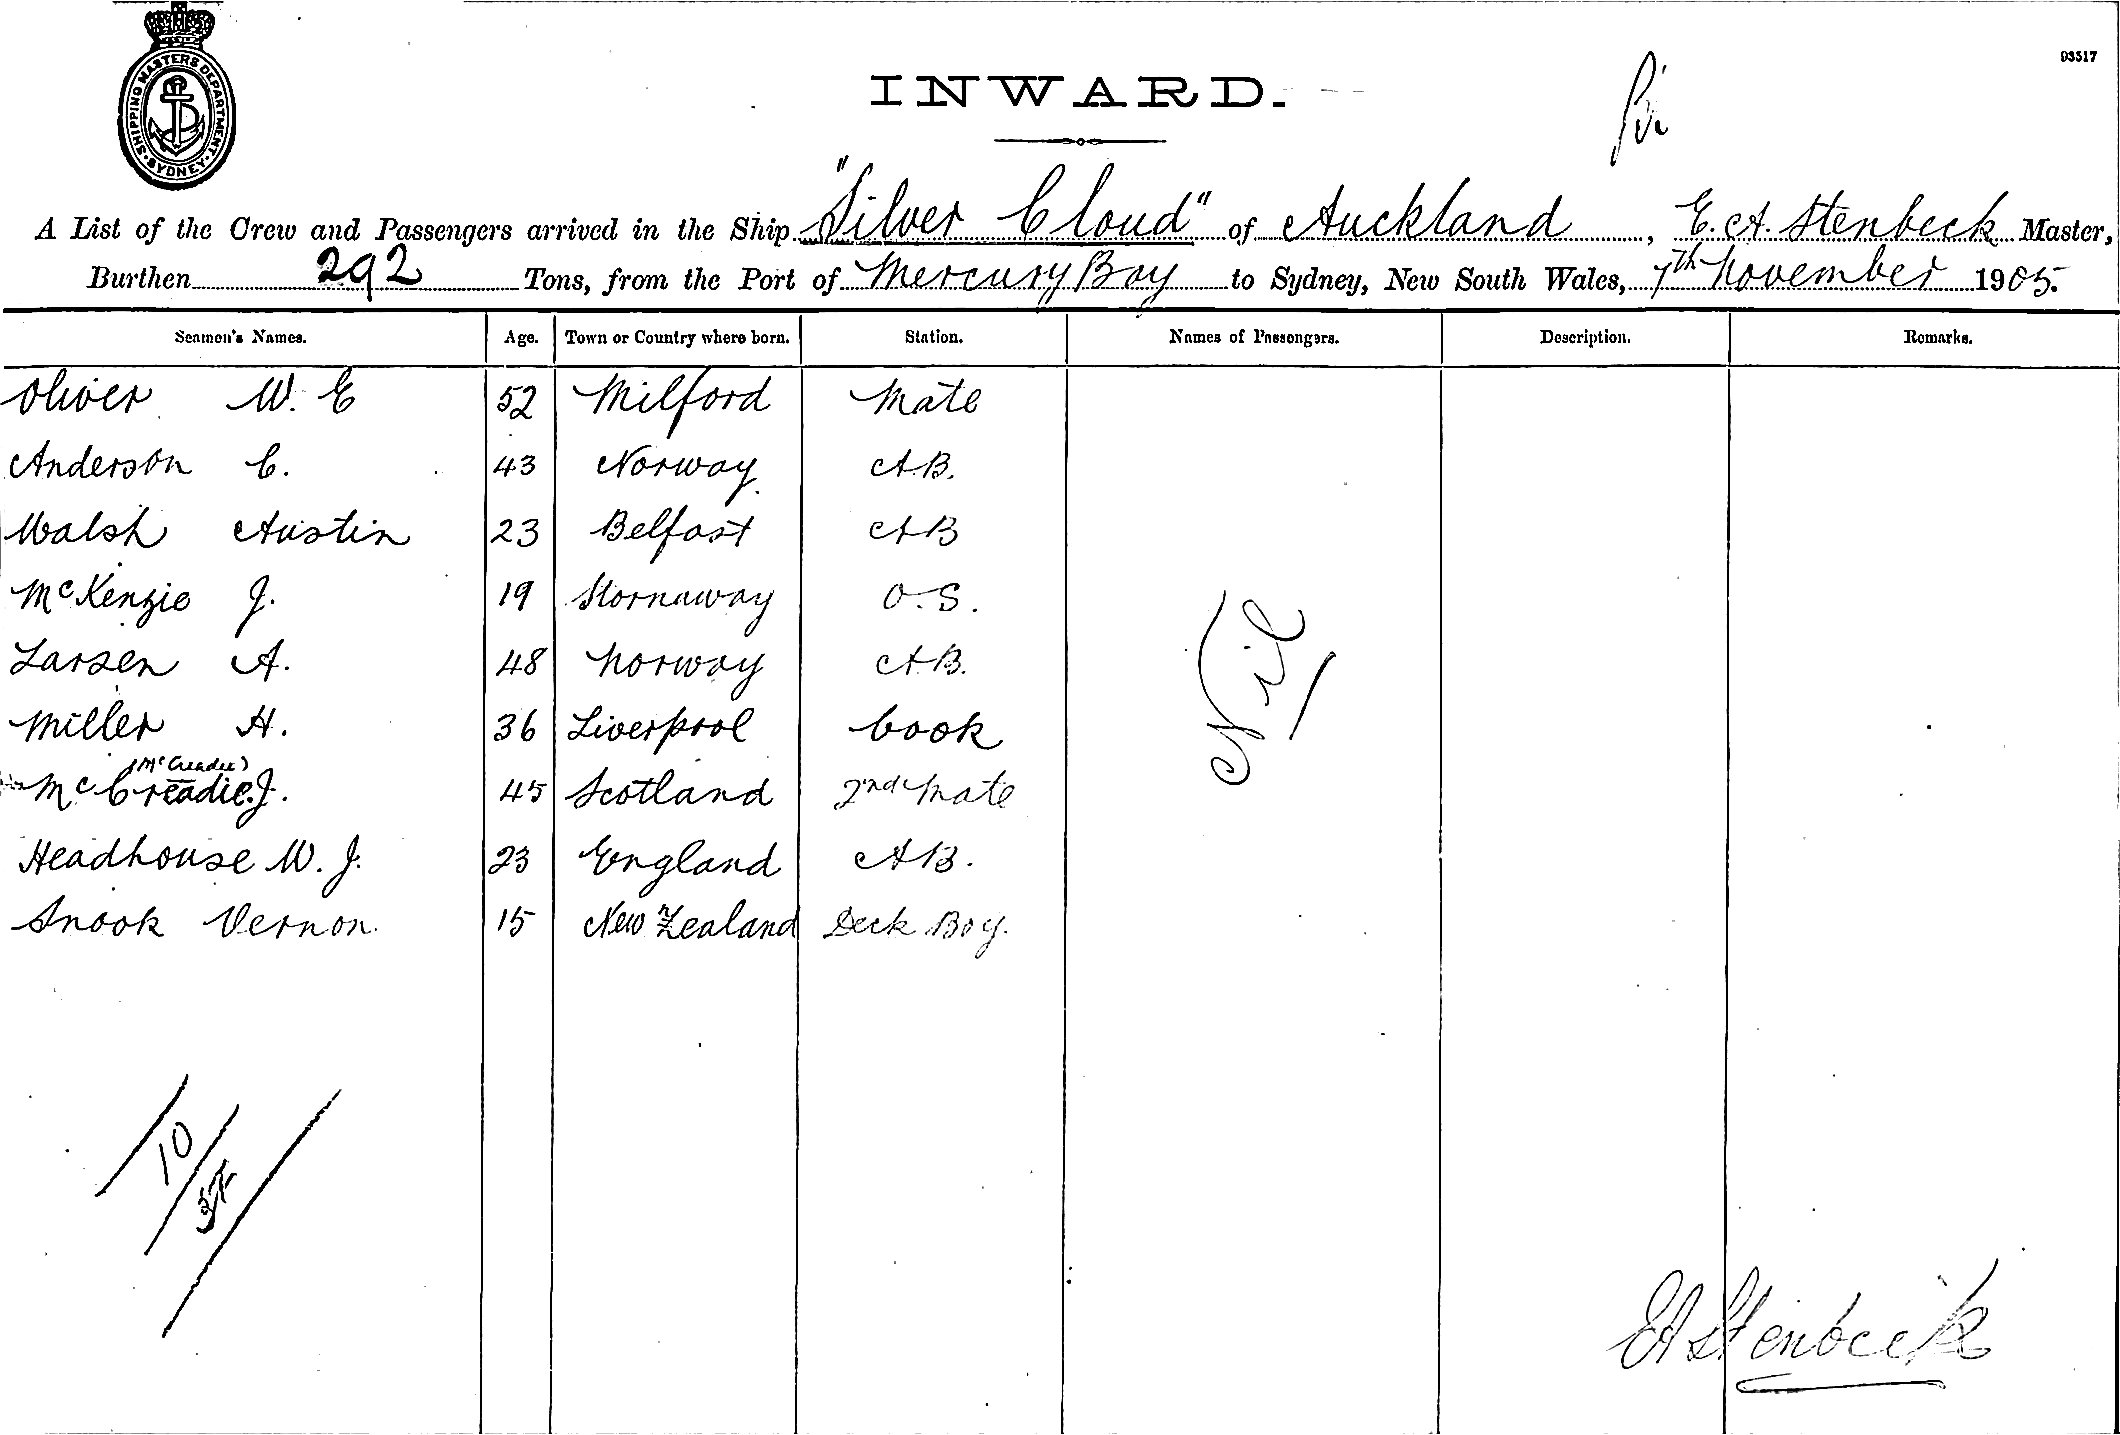 SHIPPING MASTERS DEPARTMENT SYDNEY
93517
INWARD.
A List of the Crew and Passengers arrived in the Ship "Silver Cloud" of Auckland, E. A. Stenbeck Master,
Burthen 292 Tons, from the Port of Mercury Bay to Sydney, New South Wales, 7th November 1905.
Seamen's Names. Age. Town or Country where born. Station. Names of Passengers. Description. Remarks.
Oliver W. E 52 Milford Mate
Anderson C. 43 Norway A.B.
Walsh Austin 23 Belfast AB
McKenzie J. 19 Stornaway O.S.
Larsen A. 48 Norway A.B.
Miller H. 36 Liverpool Cook
(McCreadie)
McCreadie. J. 45 Scotland 2nd Mate
Headhouse W. J. 23 England A.B.
Snook Vernon. 15 New Zealand Deck Boy.
Nil
10
EA Stenbeck